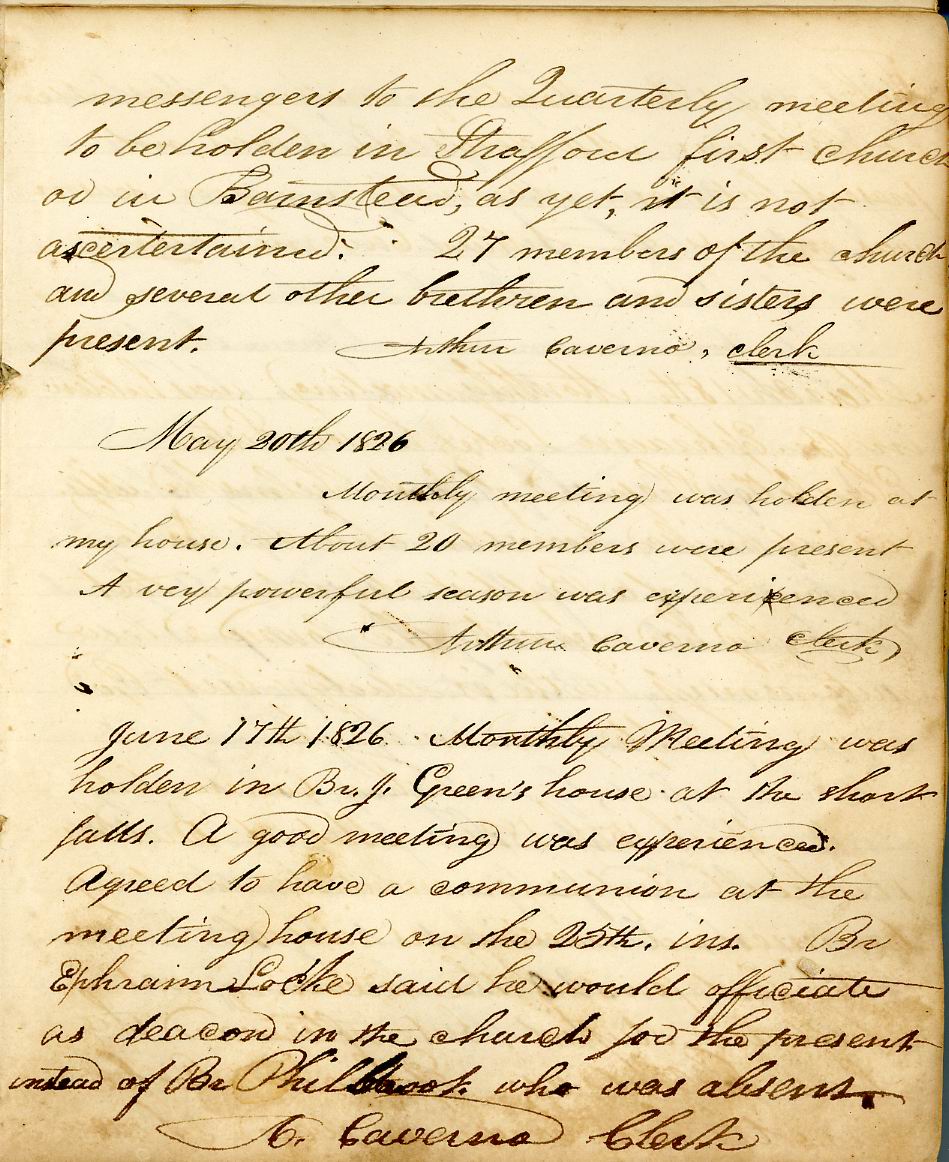 messengers to the Quarterly meeting
to be holden in Strafford first church
or in Barnstead, as yet, it is not
ascertertained. 27 members of the church
and several other brethren and sisters were
present. Arthur Caverno, clerk
May 20th 1826
Monthly meeting was holden at
my house. About 20 members were present
A very powerful season was experienced
Arthur Caverno clerk
June 17th 1826. Monthly Meeting was
holden in Br. J. Green's house at the short
falls. A good meeting was experienced.
Agreed to have a communion at the
meeting house on the 25th. ins. Br
Ephraim Locke said he would officiate
as deacon in the church for the present
instead of Br Philbrook. who was absent.
A. Caverno Clerk